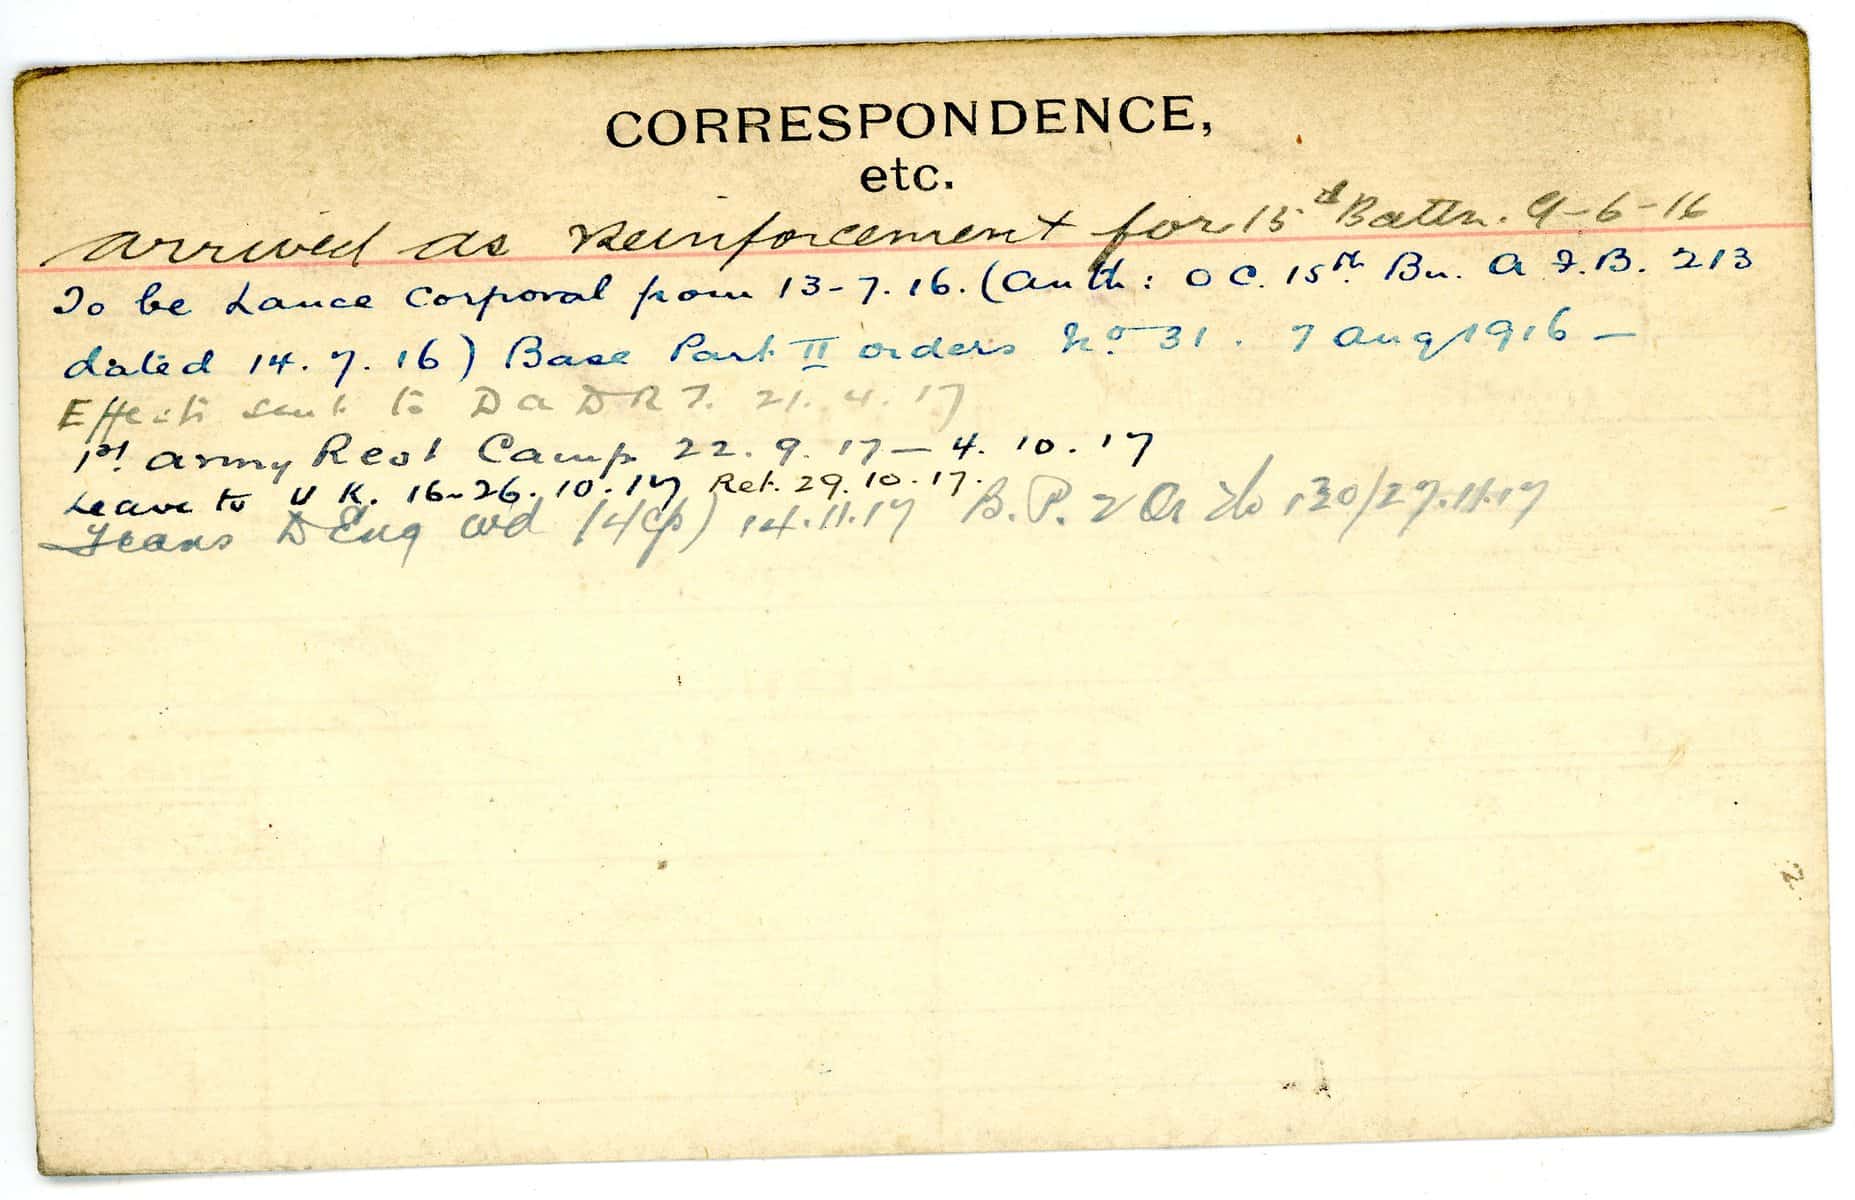 CORRESPONDENCE,
etc.
arrived as Reinforcement for 15th Battn. 9-6-16
To be Lance Corporal from 13-7.16. (Auth: O C. 15th Bn. A.F.B. 213
dated 14.7.16) Base Part II orders No 31. 7 Aug 1916 -
Effects sent to D A D R T. 21.4.17
1st Army Rest Camp 22.9.17 - 4.10.17
Leave to U K. 16-26.10.17 Ret. 29.10.17.
Trans D Eng 14.11.17 B. P. 2 Or 130/27.11.17